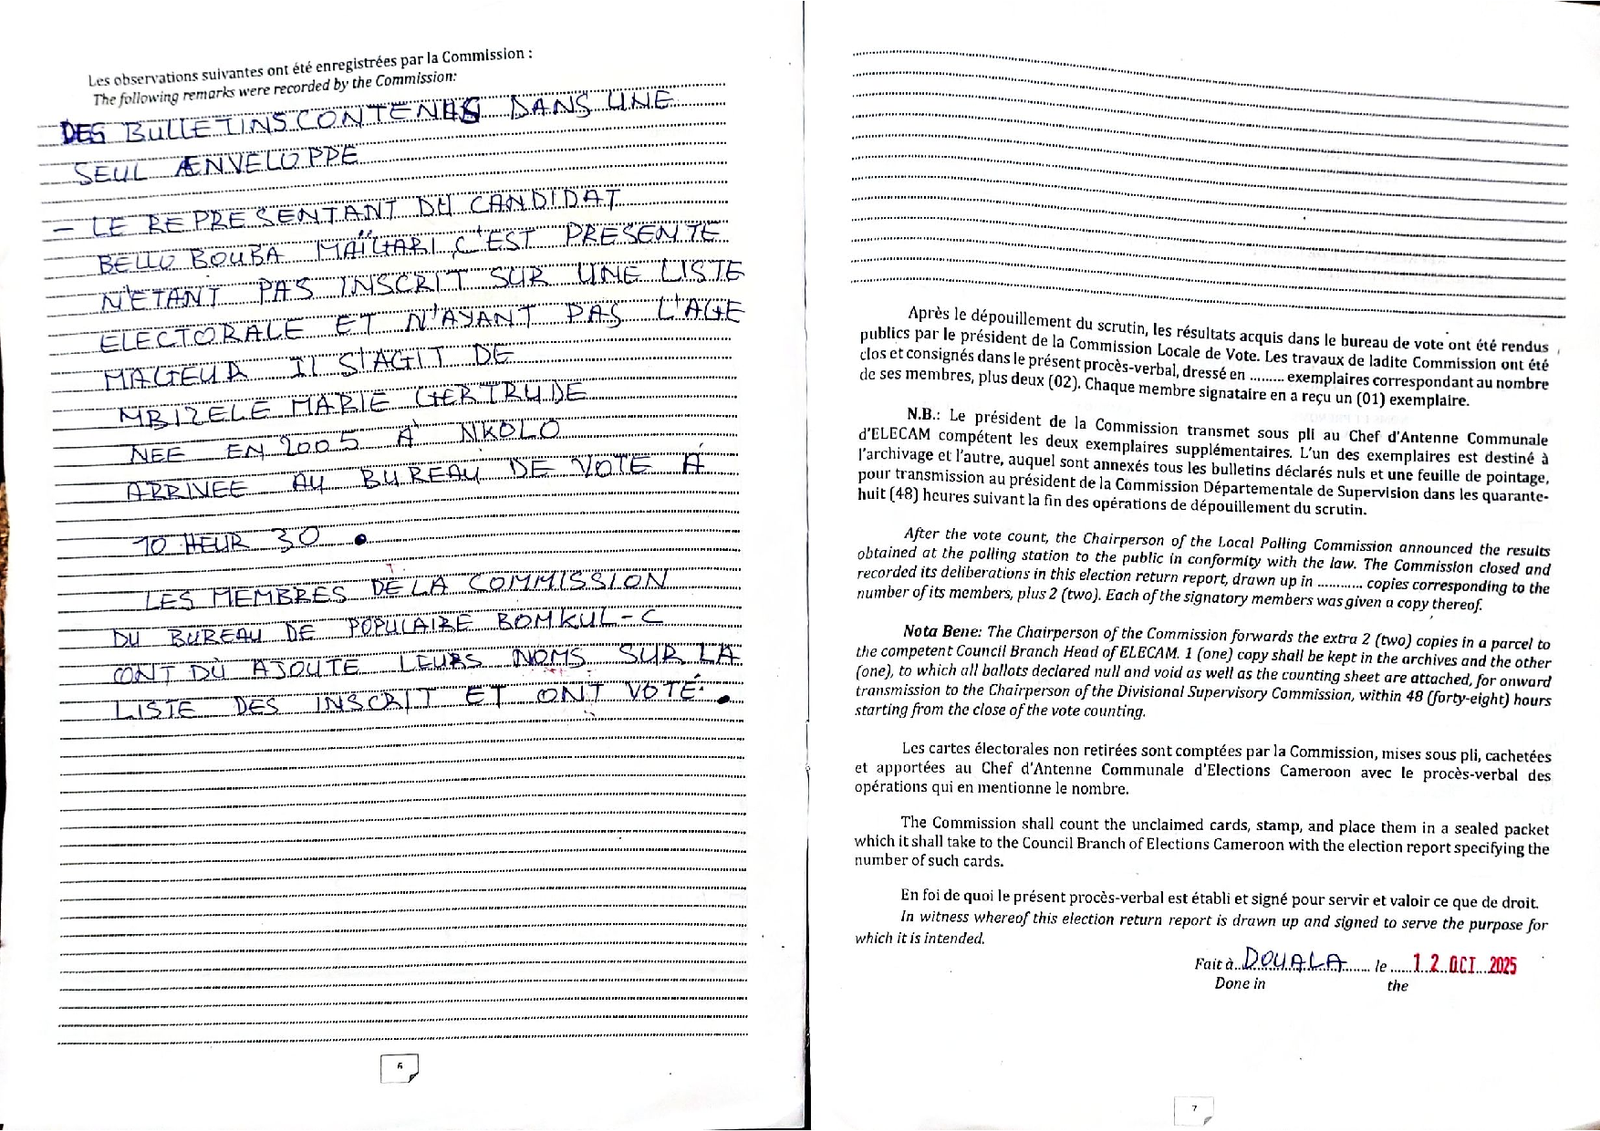 Les observations suivantes ont été enregistrées par la Commission :
The following remarks were recorded by the Commission:
DES BULLETINS CONTENUS DANS UNE
SEUL ENVELOPPE
- LE REPRESENTANT DU CANDIDAT
BELLO BOUBA MAÏGARI C'EST PRESENTE
N'ETANT PAS INSCRIT SUR UNE LISTE
ELECTORALE ET N'AYANT PAS L'AGE
MAGEUR IL S'AGIT DE
MBIZELE MARIE GERTRUDE
NEE EN 2005 A NKOLO
ARRIVEE AU BUREAU DE VOTE A
10 HEUR 30.
LES MEMBRES DE LA COMMISSION
DU BUREAU DE POPULAIRE BOMKUL-C
ONT DÛ AJOUTE LEURS NOMS SUR LA
LISTE DES INSCRIT ET ONT VOTÉ.
6
Après le dépouillement du scrutin, les résultats acquis dans le bureau de vote ont été rendus
publics par le président de la Commission Locale de Vote. Les travaux de ladite Commission ont été
clos et consignés dans le présent procès-verbal, dressé en ......... exemplaires correspondant au nombre
de ses membres, plus deux (02). Chaque membre signataire en a reçu un (01) exemplaire.
N.B.: Le président de la Commission transmet sous pli au Chef d'Antenne Communale
d'ELECAM compétent les deux exemplaires supplémentaires. L'un des exemplaires est destiné à
l'archivage et l'autre, auquel sont annexés tous les bulletins déclarés nuls et une feuille de pointage,
pour transmission au président de la Commission Départementale de Supervision dans les quarante-
huit (48) heures suivant la fin des opérations de dépouillement du scrutin.
After the vote count, the Chairperson of the Local Polling Commission announced the results
obtained at the polling station to the public in conformity with the law. The Commission closed and
recorded its deliberations in this election return report, drawn up in ........... copies corresponding to the
number of its members, plus 2 (two). Each of the signatory members was given a copy thereof.
Nota Bene: The Chairperson of the Commission forwards the extra 2 (two) copies in a parcel to
the competent Council Branch Head of ELECAM. 1 (one) copy shall be kept in the archives and the other
(one), to which all ballots declared null and void as well as the counting sheet are attached, for onward
transmission to the Chairperson of the Divisional Supervisory Commission, within 48 (forty-eight) hours
starting from the close of the vote counting.
Les cartes électorales non retirées sont comptées par la Commission, mises sous pli, cachetées
et apportées au Chef d'Antenne Communale d'Elections Cameroon avec le procès-verbal des
opérations qui en mentionne le nombre.
The Commission shall count the unclaimed cards, stamp, and place them in a sealed packet
which it shall take to the Council Branch of Elections Cameroon with the election report specifying the
number of such cards.
En foi de quoi le présent procès-verbal est établi et signé pour servir et valoir ce que de droit.
In witness whereof this election return report is drawn up and signed to serve the purpose for
which it is intended.
Fait à DOUALA le 12 OCT 2025
Done in the
7